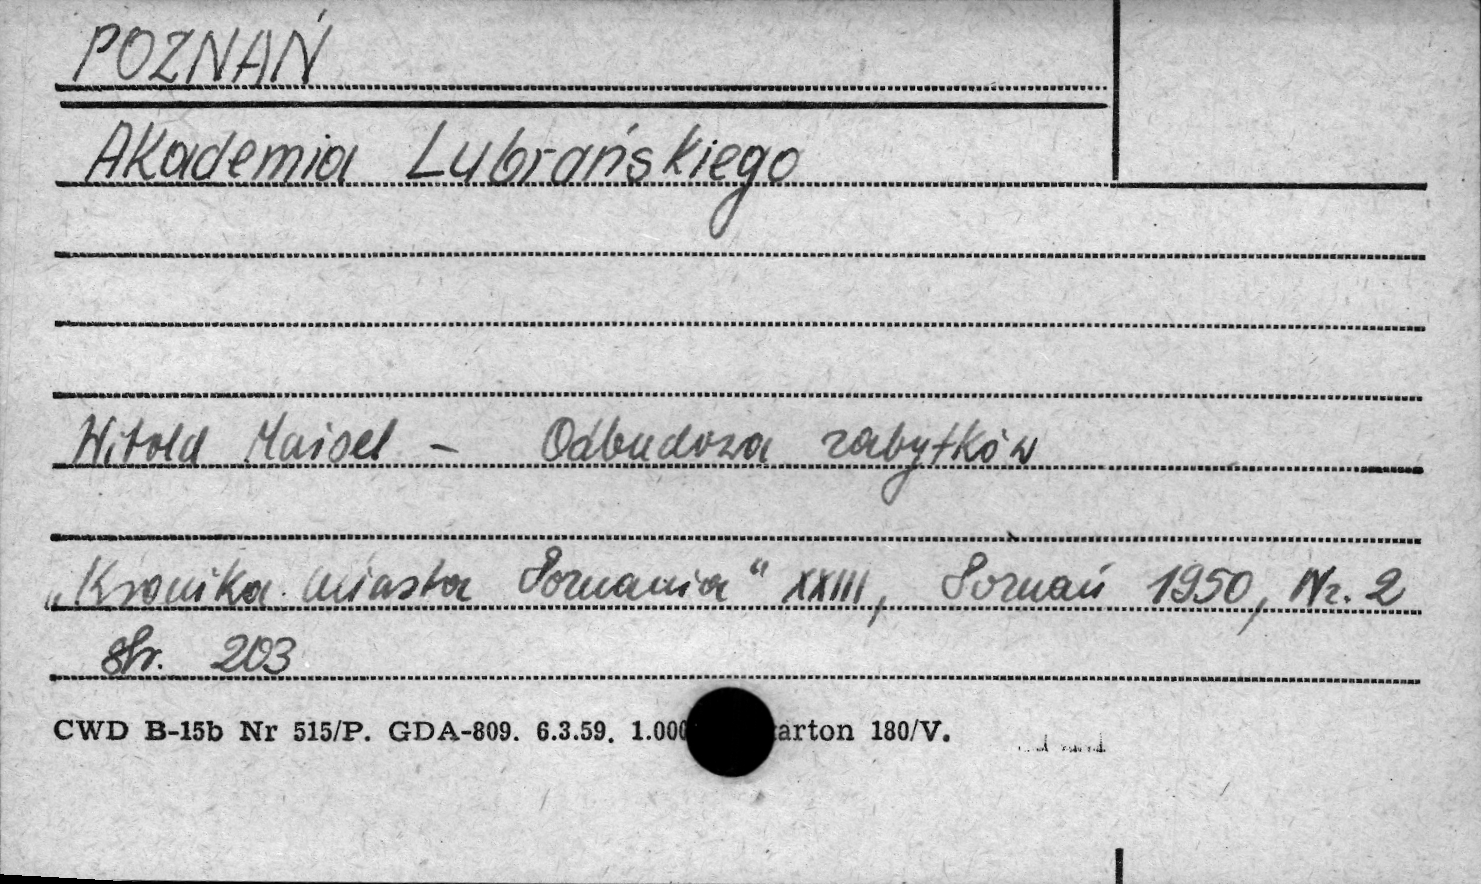 POZNAŃ
Akademia Lubrańskiego
Witold Maisel - Odbudowa zabytków
„Kronika miasta Poznania" XXIII, Poznań 1950, Nr. 2
str. 203
CWD B-15b Nr 515/P. GDA-809. 6.3.59. 1.000 arton 180/V.